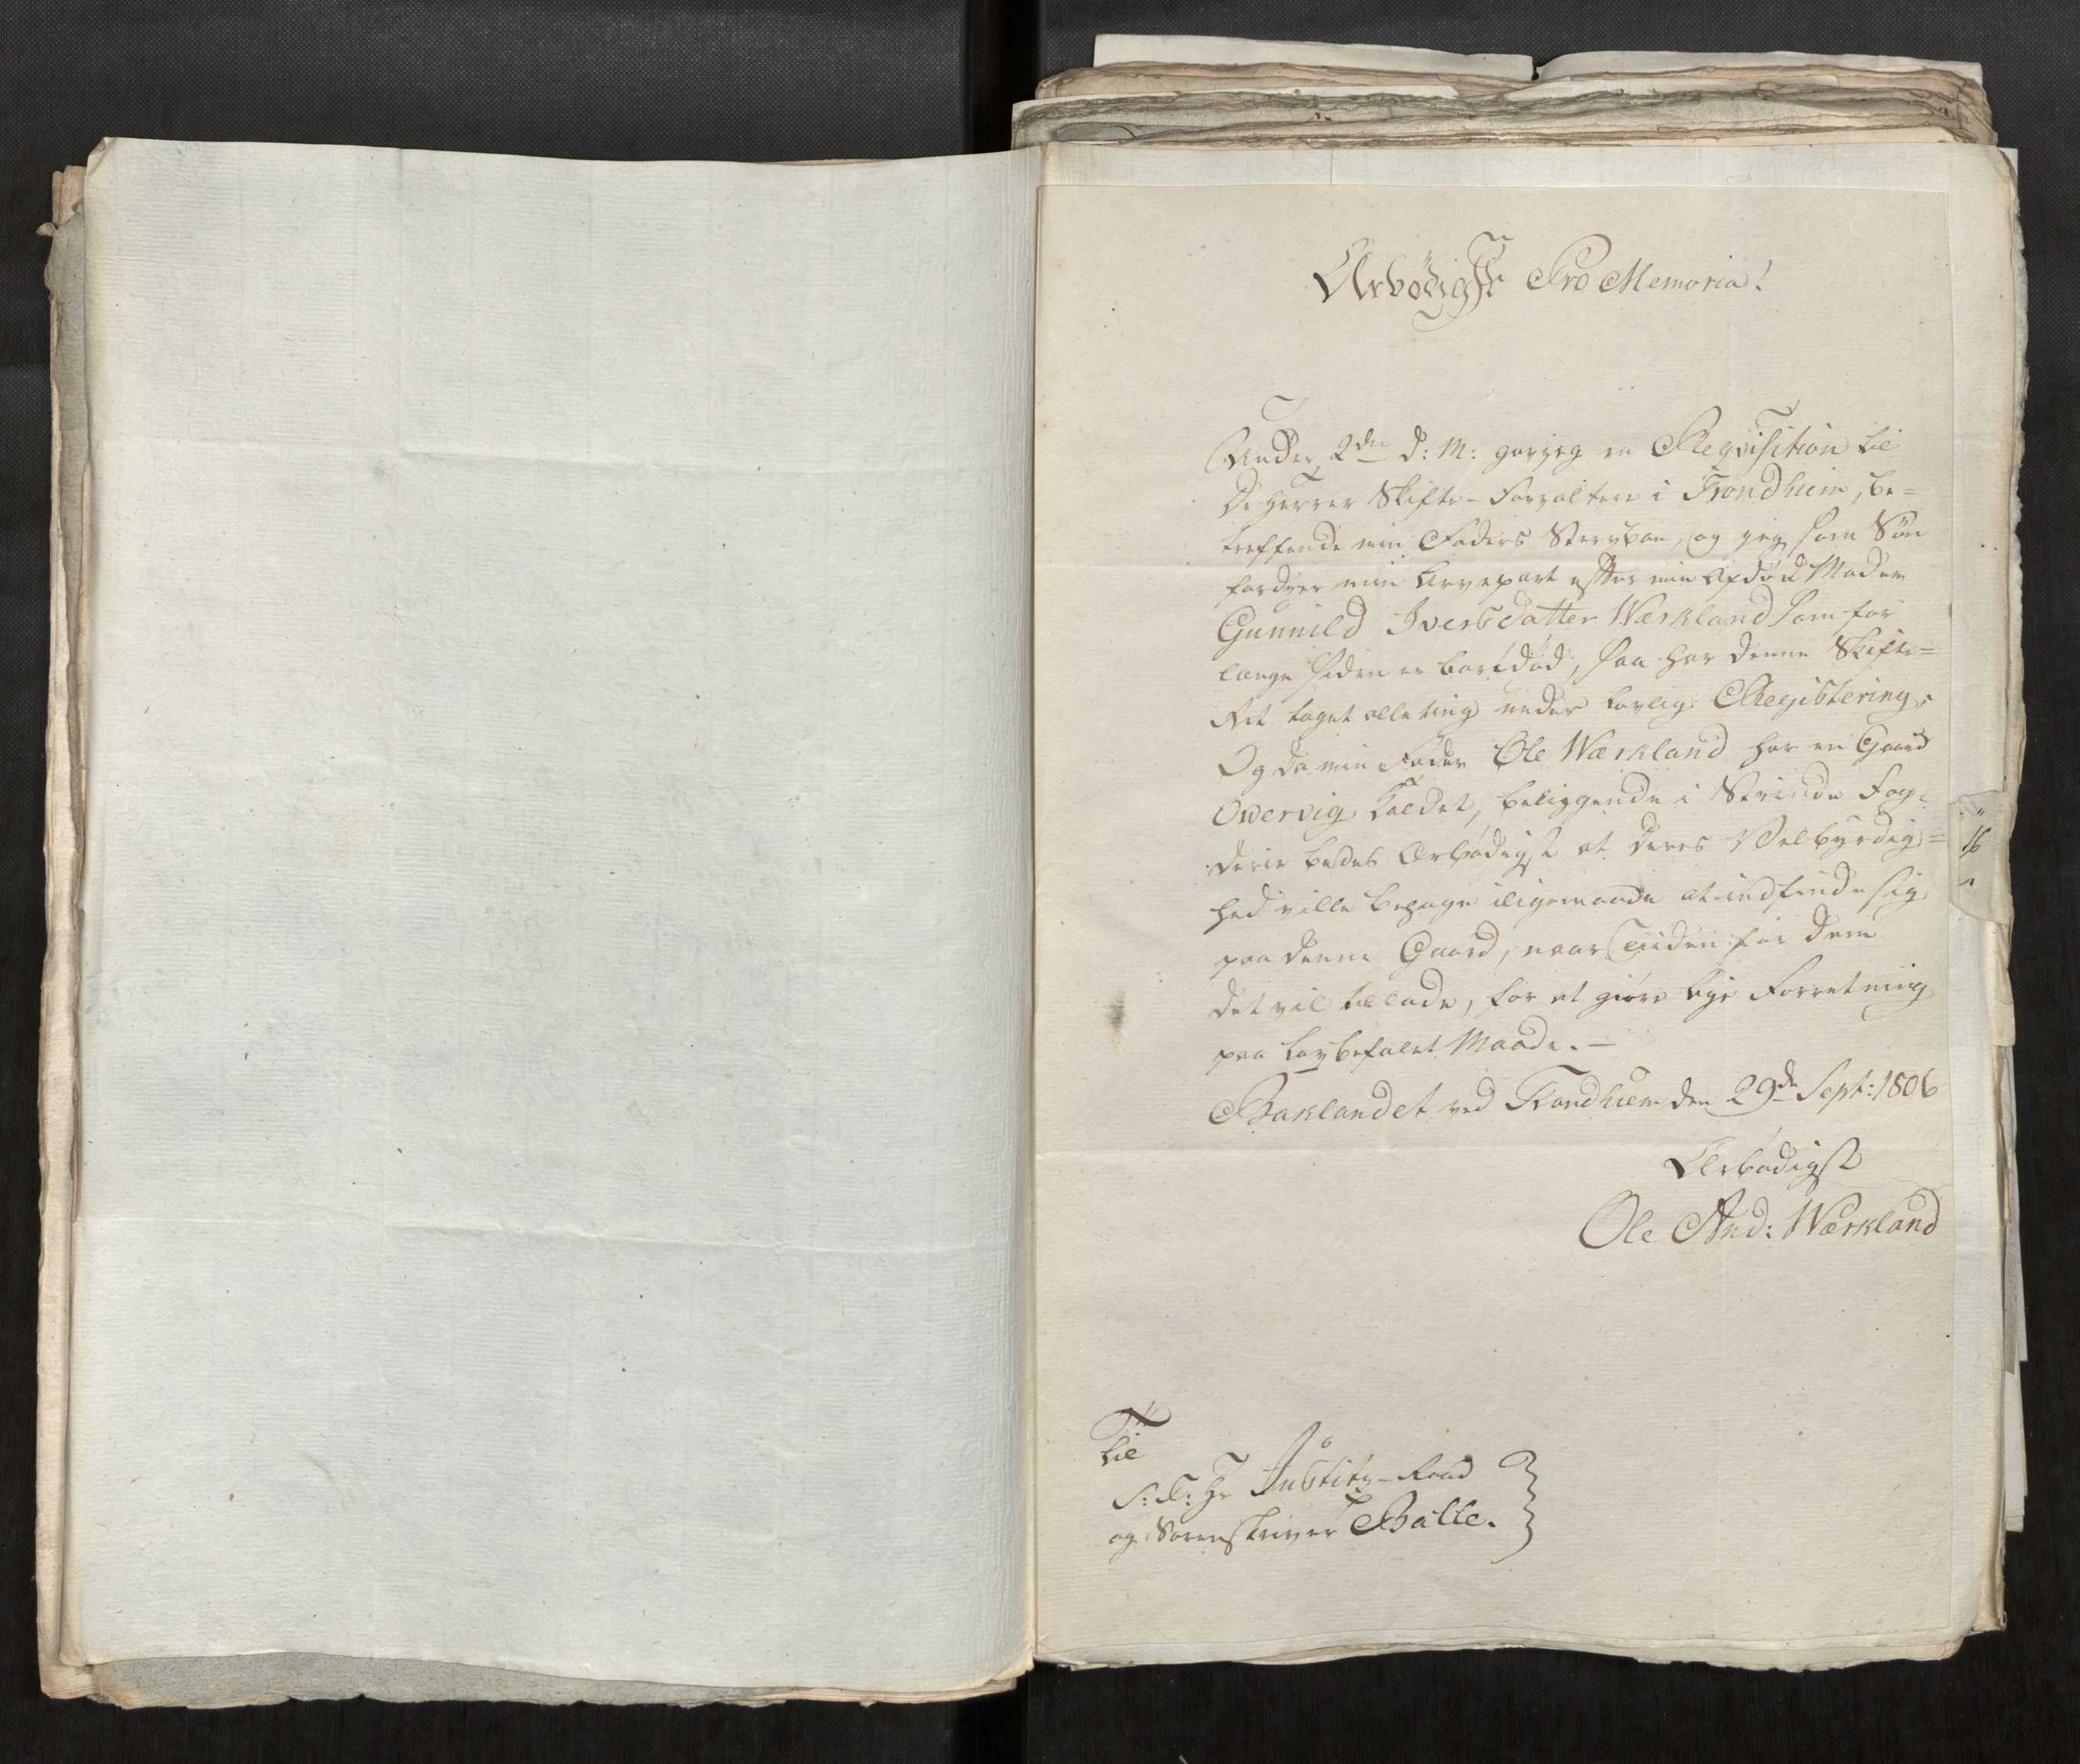 Ærbödigst Pro Memoria!
Under 2den d: M: gav jeg en Reqvisition til
De Herrer Skifte-Forvaltere i Trondhiem, be=
treffende min Faders Stervboe, og jeg som Søn
fordrer min Arvepart efter min Afdöd Moder
Gunnild Iversdatter Wærkland som for
længe siden er bortdöd, saa har denne Skifte=
Ret taget alle ting under lovlig Registering,
Og da min Fader Ole Wærkland har en Gaard
Overvig kaldet, beliggende i Strinde Fog=
derie bedes Ærbödigst at Deres Velbyrdig=
hed ville behage iligemaade at indfinde sig
paa denne Gaard, naar Tiiden for Dem
det vil tillade, for at giöre lige Forretning
paa Lovbefalet Maade. —
Baklandet ved Trondhiem den 29de Sept: 1806
Ærbödigst
Ole And: Wærkland
Til
S: T: Hr Justitz-Raad
og Sorenskriver Balle.
16